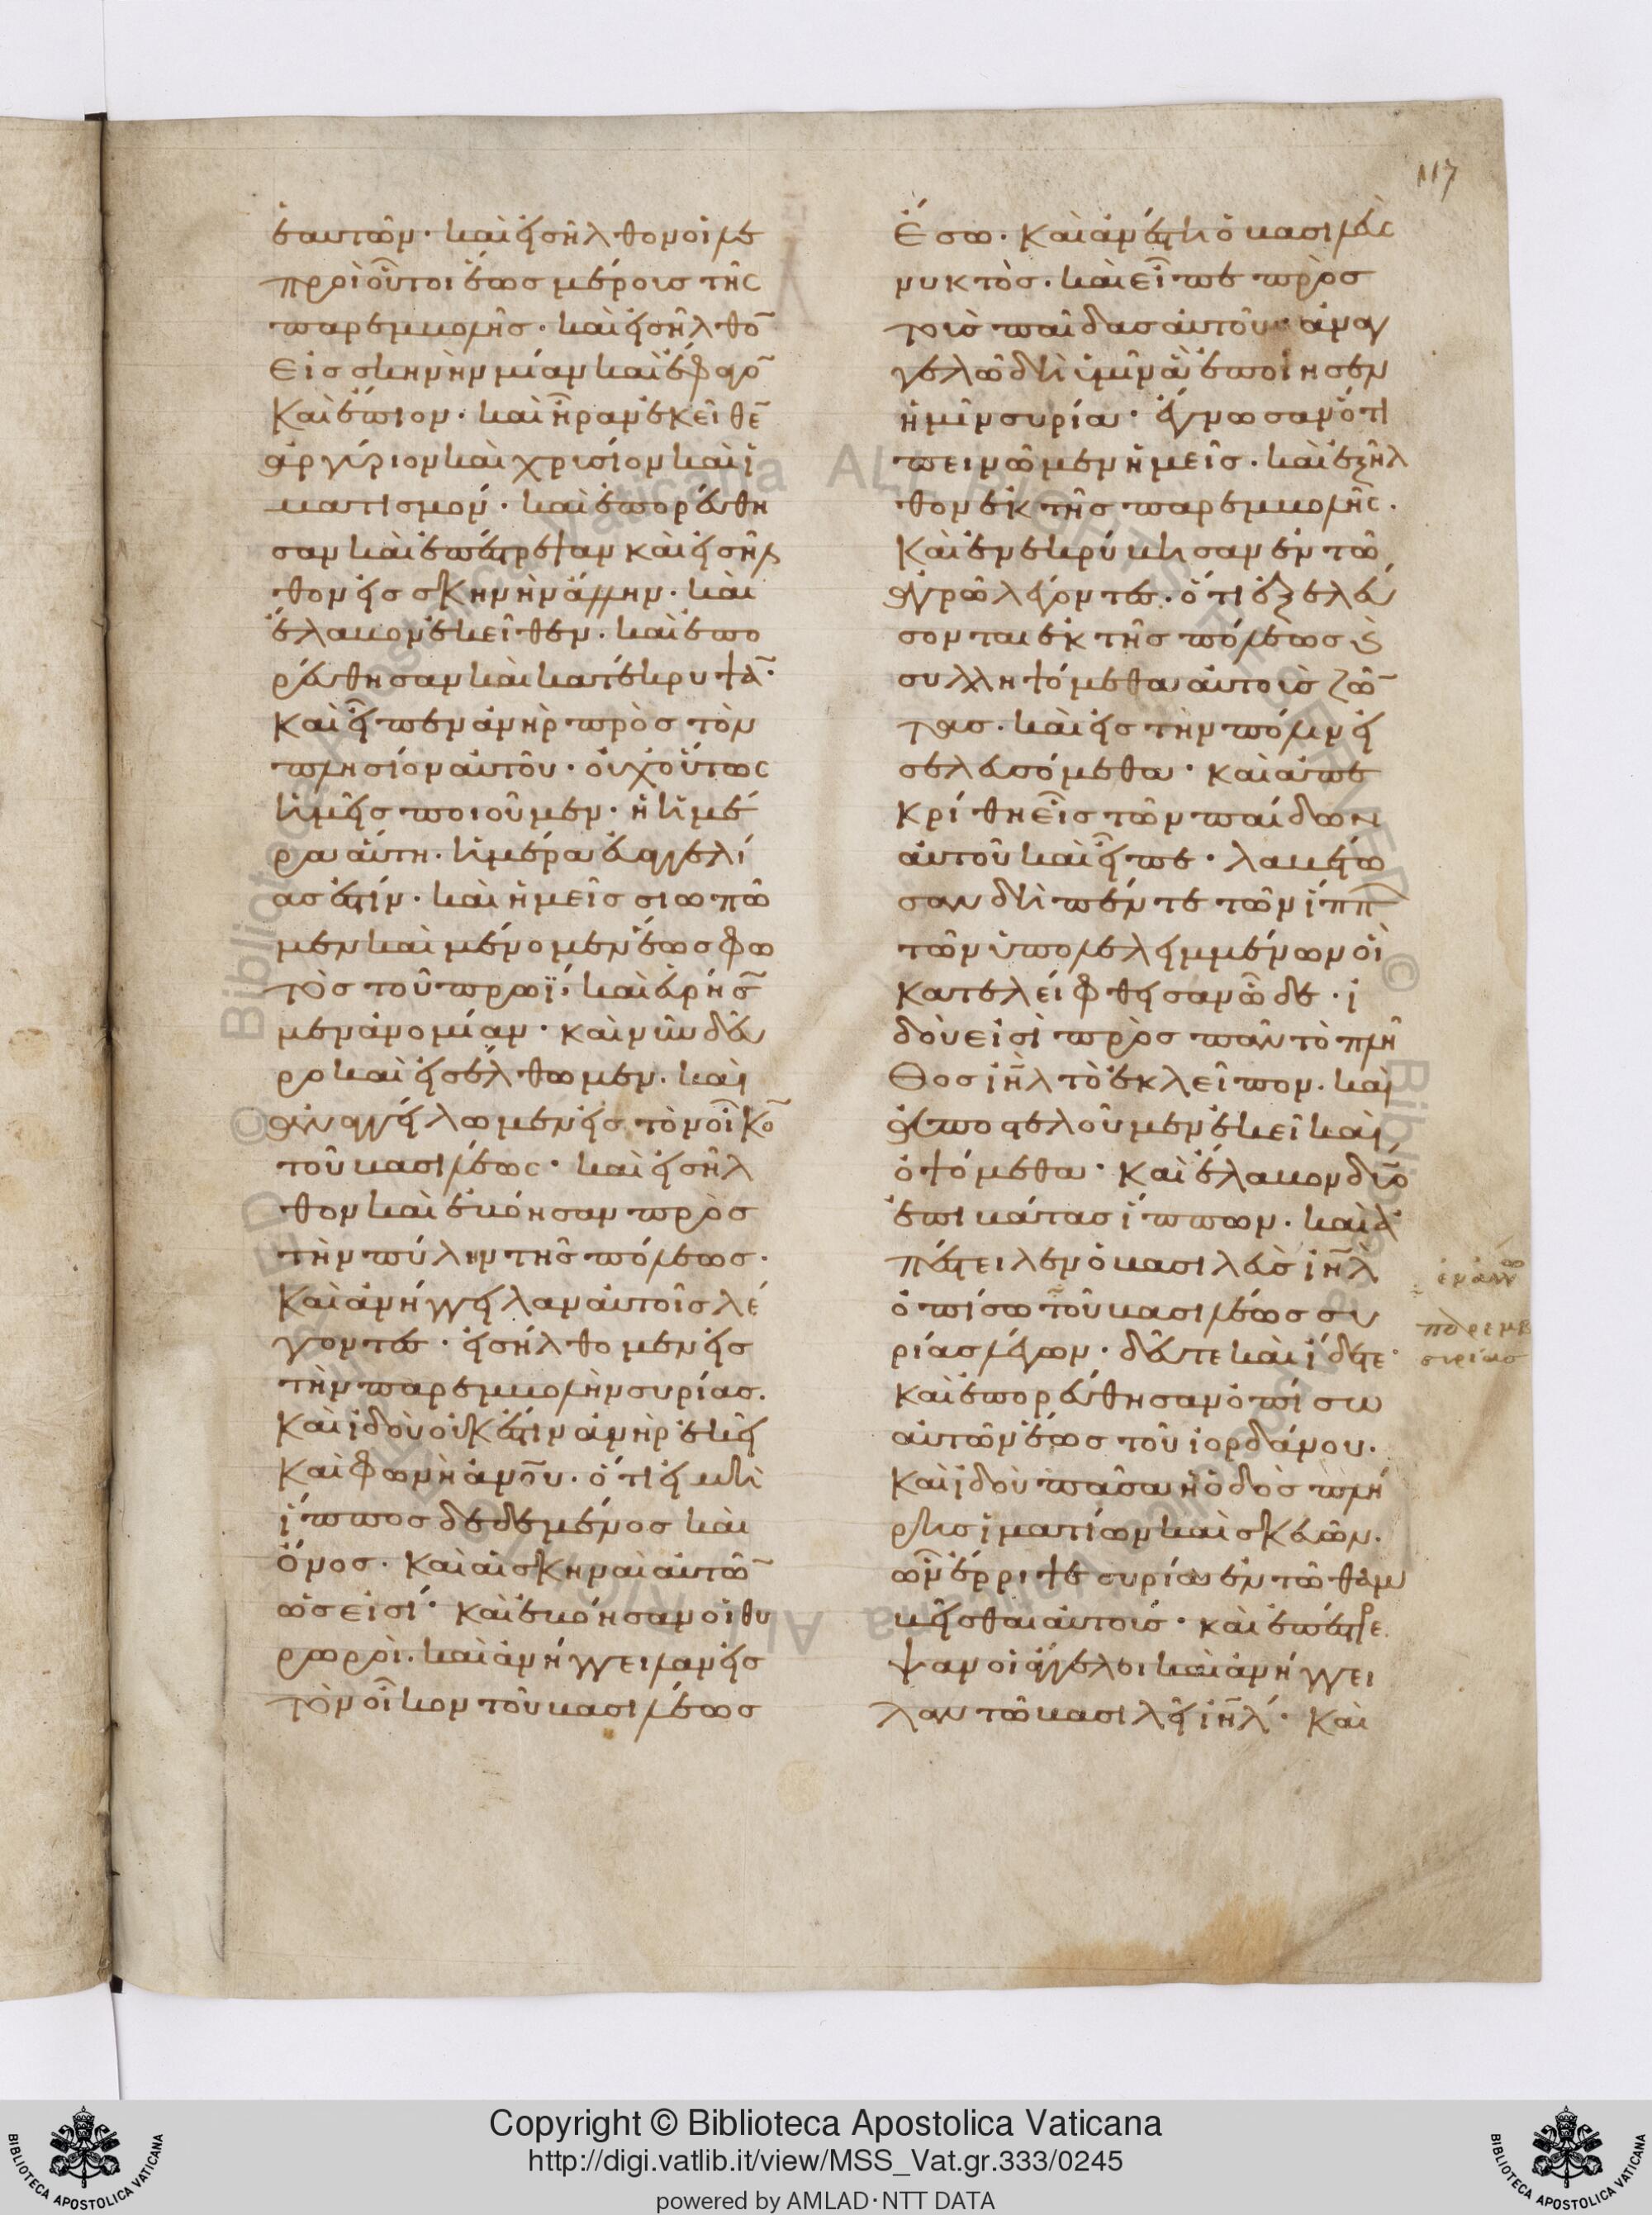 117
ἑαυτῶν· καὶ εἰσῆλθον οἱ λε
προὶ οὗτοι ἕως μέρους τῆς
παρεμβολῆς· καὶ εἰσῆλθο̄
εἰς σκηνὴν μίαν καὶ ἔφαγο̄
καὶ ἔπιον· καὶ ἦραν ἐκεῖθε̄
ἀργύριον καὶ χρυσίον καὶ ἱ
ματισμόν· καὶ ἐπορεύθη
σαν καὶ ἐπέστρεψαν καὶ εἰσῆλ
θον εἰς σκηνὴν ἄλλην· καὶ
ἔλαβον ἐκεῖθεν· καὶ ἐπο
ρεύθησαν καὶ κατέκρυψᾱ·
καὶ εἶπεν ἀνὴρ πρὸς τὸν
πλησίον αὐτοῦ· οὐχ οὕτως
ἡμεῖς ποιοῦμεν· ἡ ἡμέ
ρα αὕτη· ἡμέρα εὐαγγελί
ας ἐστίν· καὶ ἡμεῖς σιωπῶ
μεν καὶ μένομεν ἕως φω
τὸς τοῦ πρωΐ· καὶ εὑρήσο̄
μεν ἀνομίαν· καὶ νῦν δεῦ
ρο καὶ εἰσέλθωμεν· καὶ
ἀναγγείλωμεν εἰς τὸν οἶκο̄
τοῦ βασιλέως· καὶ εἰσῆλ
θον καὶ ἐβόησαν πρὸς
τὴν πύλην τῆς πόλεως·
καὶ ἀνήγγειλαν αὐτοῖς λέ
γοντες· εἰσήλθομεν εἰς
τὴν παρεμβολὴν συρίας·
καὶ ἰδοὺ οὐκ ἔστιν ἀνὴρ ἐκεῖ
καὶ φωνὴ ἀνο̄υ· ὅτι εἰ μὴ
ἵππος δεδεμένος καὶ
ὄνος· καὶ αἱ σκηναὶ αὐτῶ̄
ὡς εἰσί· καὶ ἐβόησαν οἱ θυ
ρωροὶ· καὶ ἀνήγγειλαν εἰς
τὸν οἶκον τοῦ βασιλέως
ἔσω· καὶ ἀνέστη ὁ βασιλεὺς
νυκτὸς· καὶ εἶπε πρὸς
τοὺς παῖδας αὐτοῦ· ἀναγ
γελῶ δὴ ὑμῖν ἃ ἐποίησεν
ἡμῖν συρία· ἔγνωσαν ὅτι
πεινῶμεν ἡμεῖς· καὶ ἐξῆλ
θον ἐκ τῆς παρεμβολῆς·
καὶ ἐνεκρύβησαν ἐν τῶ
ἀγρῶ λέγοντες· ὅτι ἐξελεύ
σονται ἐκ τῆς πόλεως ϗ
συλληψόμεθα αὐτοὺς ζῶ̄
τας· καὶ εἰς τὴν πόλιν εἰ
σελευσόμεθα· καὶ ἀπε
κρίθη εἷς τῶν παίδων
αὐτοῦ καὶ εἶπε· λαβέτω
σαν δὴ πέντε τῶν ἵππ
τῶν ὑπολελειμμένων οἳ
κατελείφθησαν ὧδε· ἰ
δοὺ εἰσὶ πρὸς πᾶν τὸ πλῆ
θος ιη̄λ τὸ ἐκλεῖπον· καὶ
ἀποστελοῦμεν ἐκεῖ καὶ
ὀψόμεθα· καὶ ἔλαβον δύο
ἐπιβάτας ἵππων· καὶ ἀ
πέστειλεν ὁ βασιλεὺς ιη̄λ
ὀπίσω τοῦ βασιλέως συ
ρίας λέγων· δεῦτε καὶ ἴδετε·
καὶ ἐπορεύθησαν ὀπίσω
αὐτῶν ἕως τοῦ ἰορδάνου·
καὶ ἰδοὺ πᾶσα ἡ ὁδὸς πλή
ρης ἱματίων καὶ σκευῶν·
ὧν ἔρριψε συρία ἐν τῶ θαμ
βεῖσθαι αὐτούς· καὶ ἐπέστρε
ψαν οἱ ἄγγελοι καὶ ἀνήγγει
λαν τῶ βασιλεῖ ιη̄λ· καὶ
συρίας
Copyright © Biblioteca Apostolica Vaticana
http://digi.vatlib.it/view/MSS_Vat.gr.333/0245
powered by AMLAD·NTT DATA
BIBLIOTECA APOSTOLICA VATICANA
BIBLIOTECA APOSTOLICA VATICANA